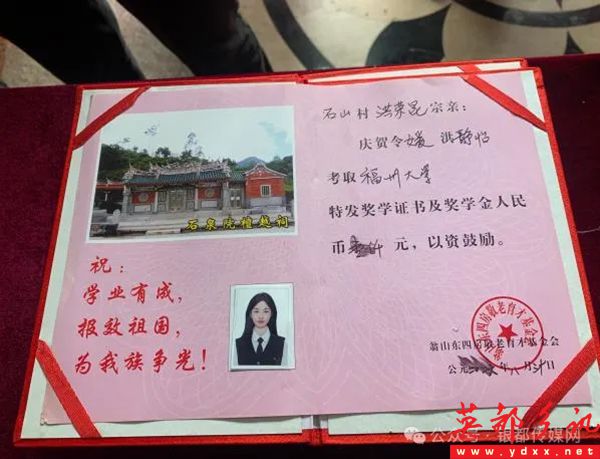 石泉院檀越祠
祝：
学业有成，
报效祖国，
为我族争光！
石山村 洪荣昆宗亲：
庆贺令媛 洪静怡
考取 福州大学
特发奖学证书及奖学金人民
币 元，以资鼓励。
翁山东四房敬老育才基金会
公元 年八月31日
公众号·银都传媒网
英都
www.ydxx.net